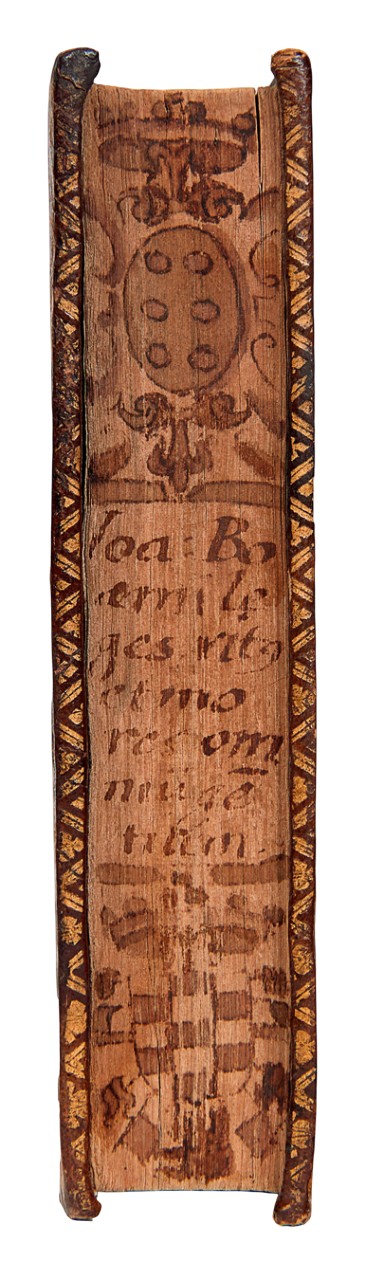 Ioa: Bo
emi le
ges ritꝯ
et mo
res om
niũ gẽ
tium.